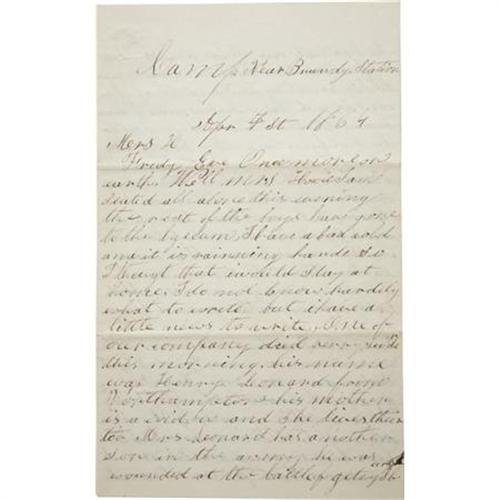 Camp Near Brandy Station
Apr 1st 1864
Mers H
Friday Eve Once more on
earth. Well Mrs I am
seated all alone this evening
the rest of the boys have gone
to the lyceum. I have a bad cold
and it is rainning hard so
I thougt that I would stay at
home. I do not know hardely
what to write but i have a
little news to write. One of
our company died very
this morning his name
was Henry Leonard from
Northampton his mother
is a widow and she lives their
to. Mrs Leonard has another
son in the army he was
wounded at the battle of